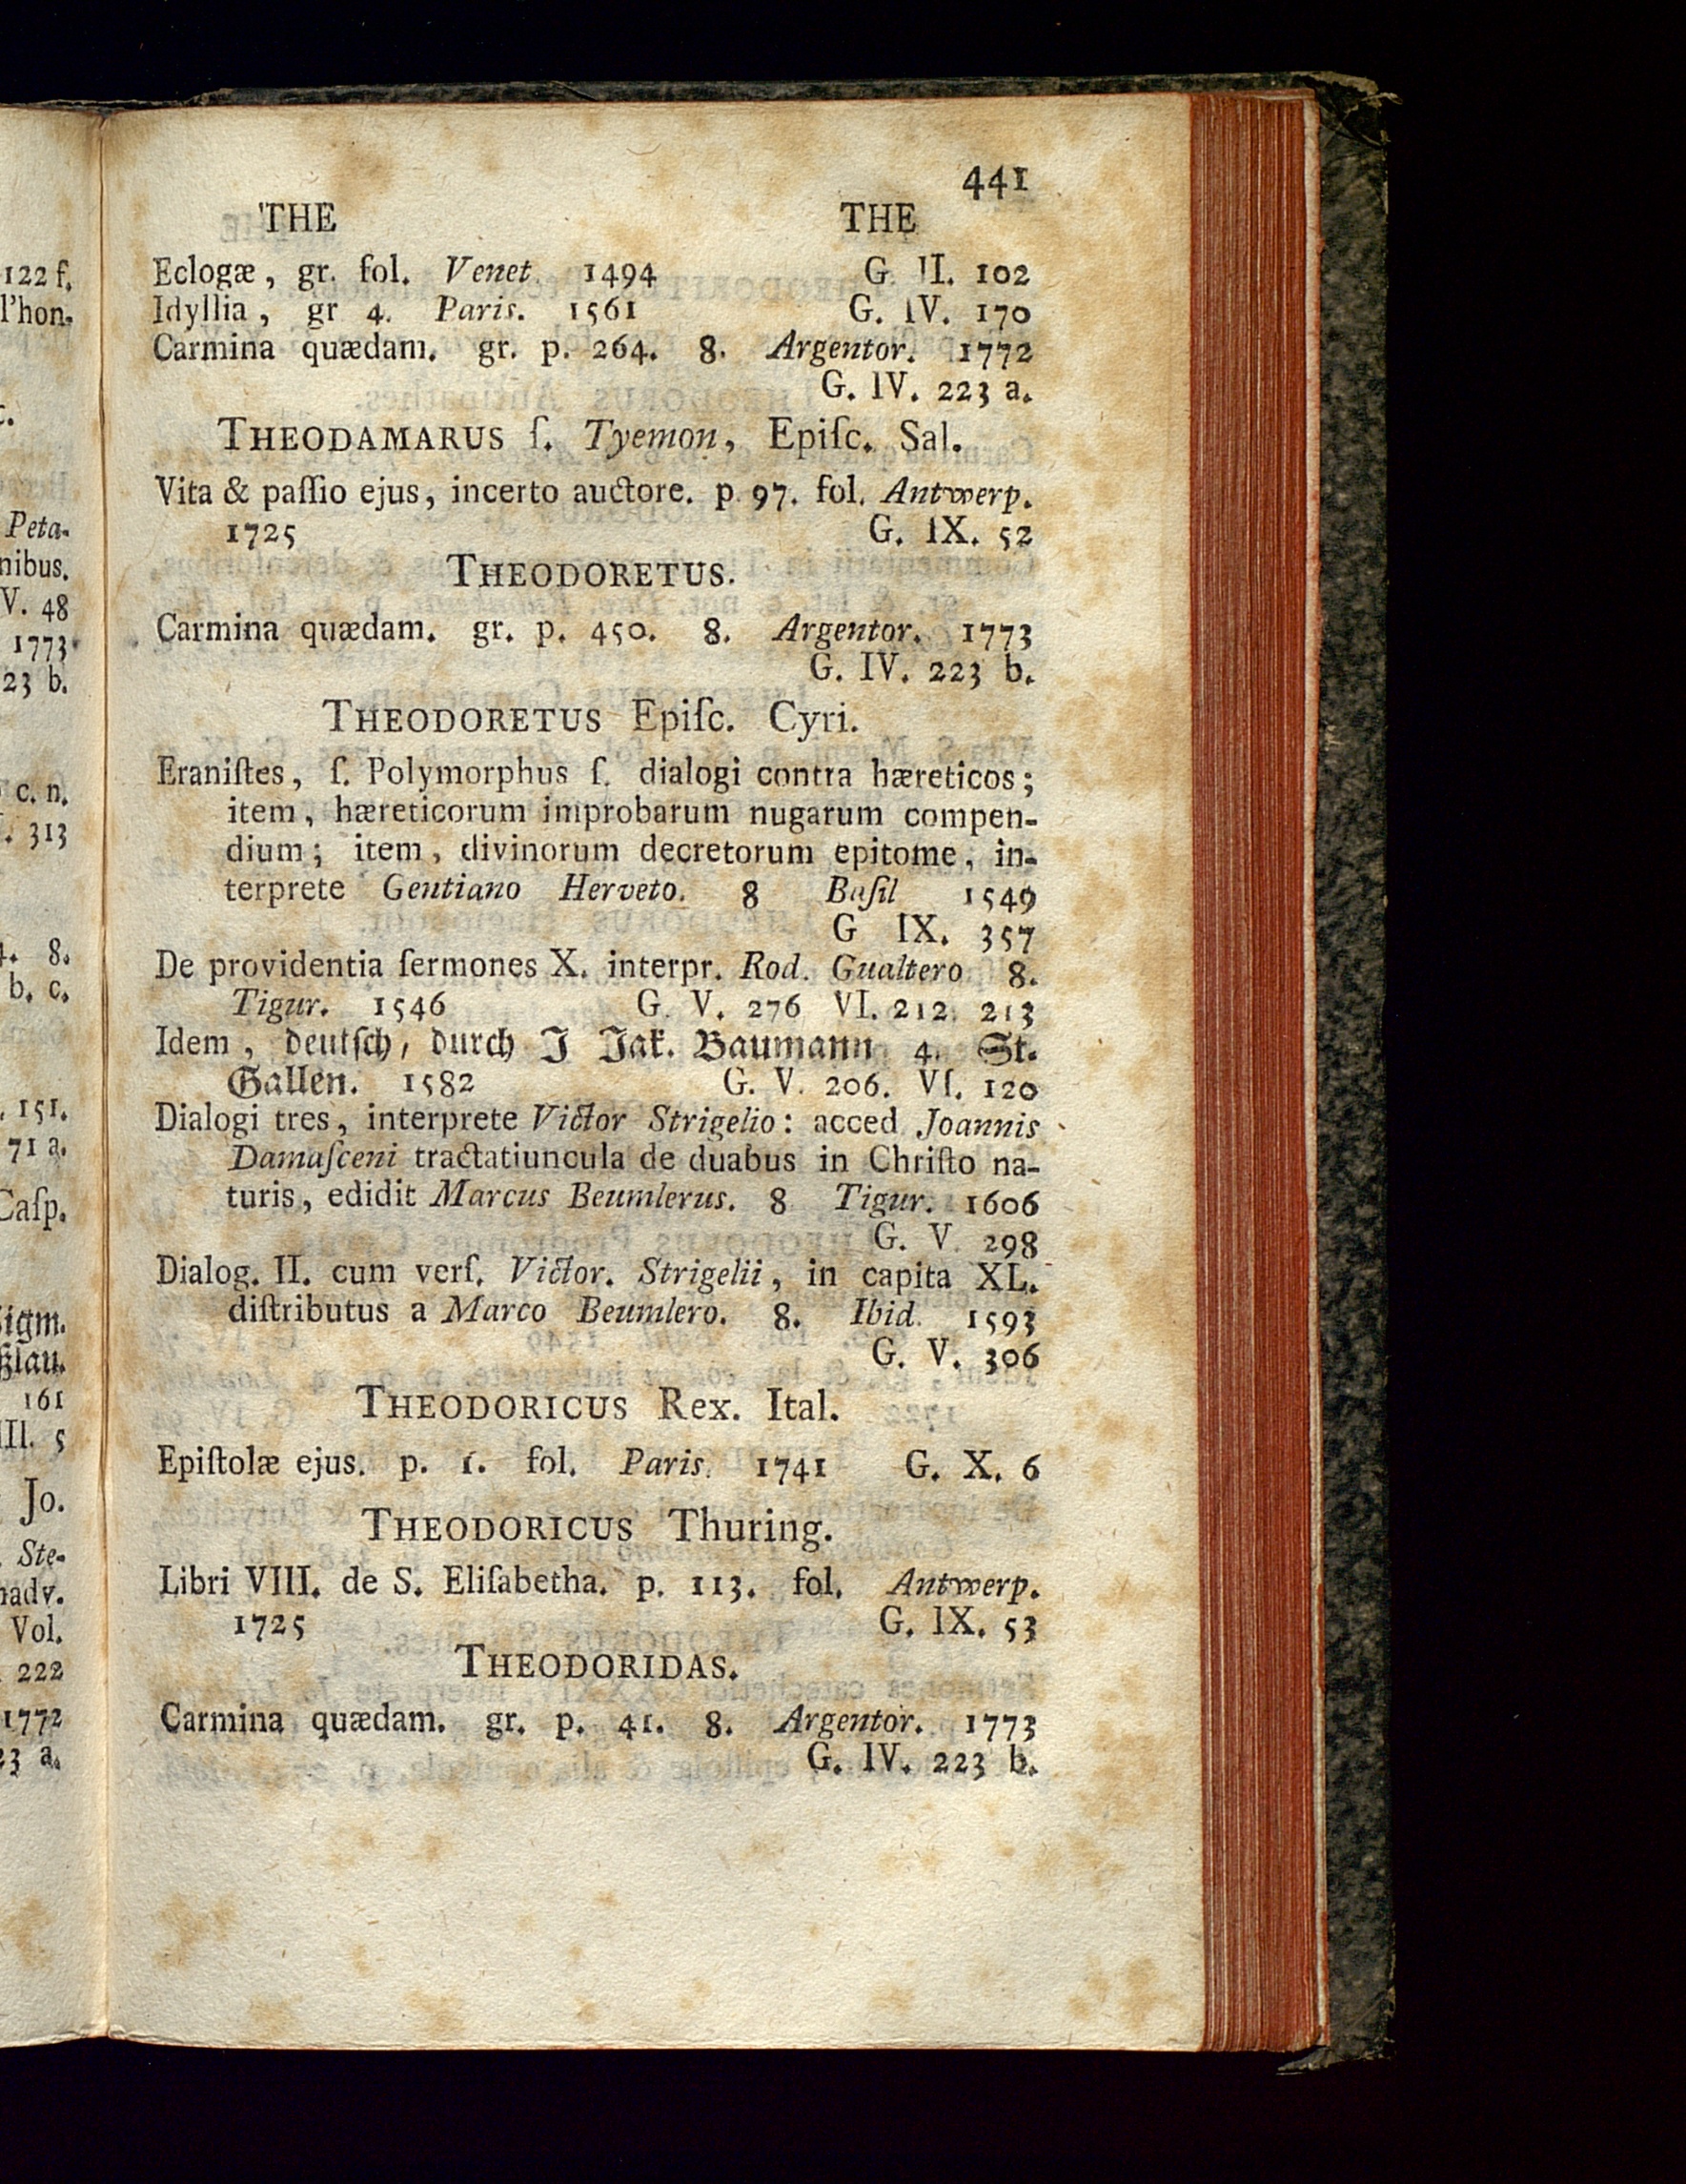 122 f.
l'hon-
Peta-
nibus.
V. 48
1773
23 b.
c. n.
313
8.
b. c.
151.
71 a.
Caſp.
igm.
161
III. 5
Jo.
Ste-
adv.
Vol.
222
1772
23 a.
441
THE THE
Eclogæ, gr. fol. Venet. 1494 G. II. 102
Idyllia, gr 4. Paris. 1561 G. IV. 170
Carmina quædam. gr. p. 264. 8. Argentor. 1772
G. IV. 223 a.
THEODAMARUS ſ. Tyemon, Epiſc. Sal.
Vita & paſſio ejus, incerto auctore. p. 97. fol. Antwerp.
1725 G. IX. 52
THEODORETUS.
Carmina quædam. gr. p. 450. 8. Argentor. 1773
G. IV. 223 b.
THEODORETUS Epiſc. Cyri.
Eraniſtes, ſ. Polymorphus ſ. dialogi contra hæreticos;
item, hæreticorum improbarum nugarum compen-
dium; item, divinorum decretorum epitome, in-
terprete Gentiano Herveto. 8 Baſil 1549
G IX. 357
De providentia ſermones X. interpr. Rod. Gualtero 8.
Tigur. 1546 G. V. 276 VI. 212. 213
Idem, deutſch, durch J Jak. Baumann 4. St.
Gallen. 1582 G. V. 206. VI. 120
Dialogi tres, interprete Victor Strigelio: acced Joannis
Damaſceni tractatiuncula de duabus in Chriſto na-
turis, edidit Marcus Beumlerus. 8 Tigur. 1606
G. V. 298
Dialog. II. cum verſ. Victor. Strigelii, in capita XL.
diſtributus a Marco Beumlero. 8. Ibid. 1593
G. V. 306
THEODORICUS Rex. Ital.
Epiſtolæ ejus. p. 1. fol. Paris. 1741 G. X. 6
THEODORICUS Thuring.
Libri VIII. de S. Eliſabetha. p. 113. fol. Antwerp.
1725 G. IX. 53
THEODORIDAS.
Carmina quædam. gr. p. 41. 8. Argentor. 1773
G. IV. 223 b.